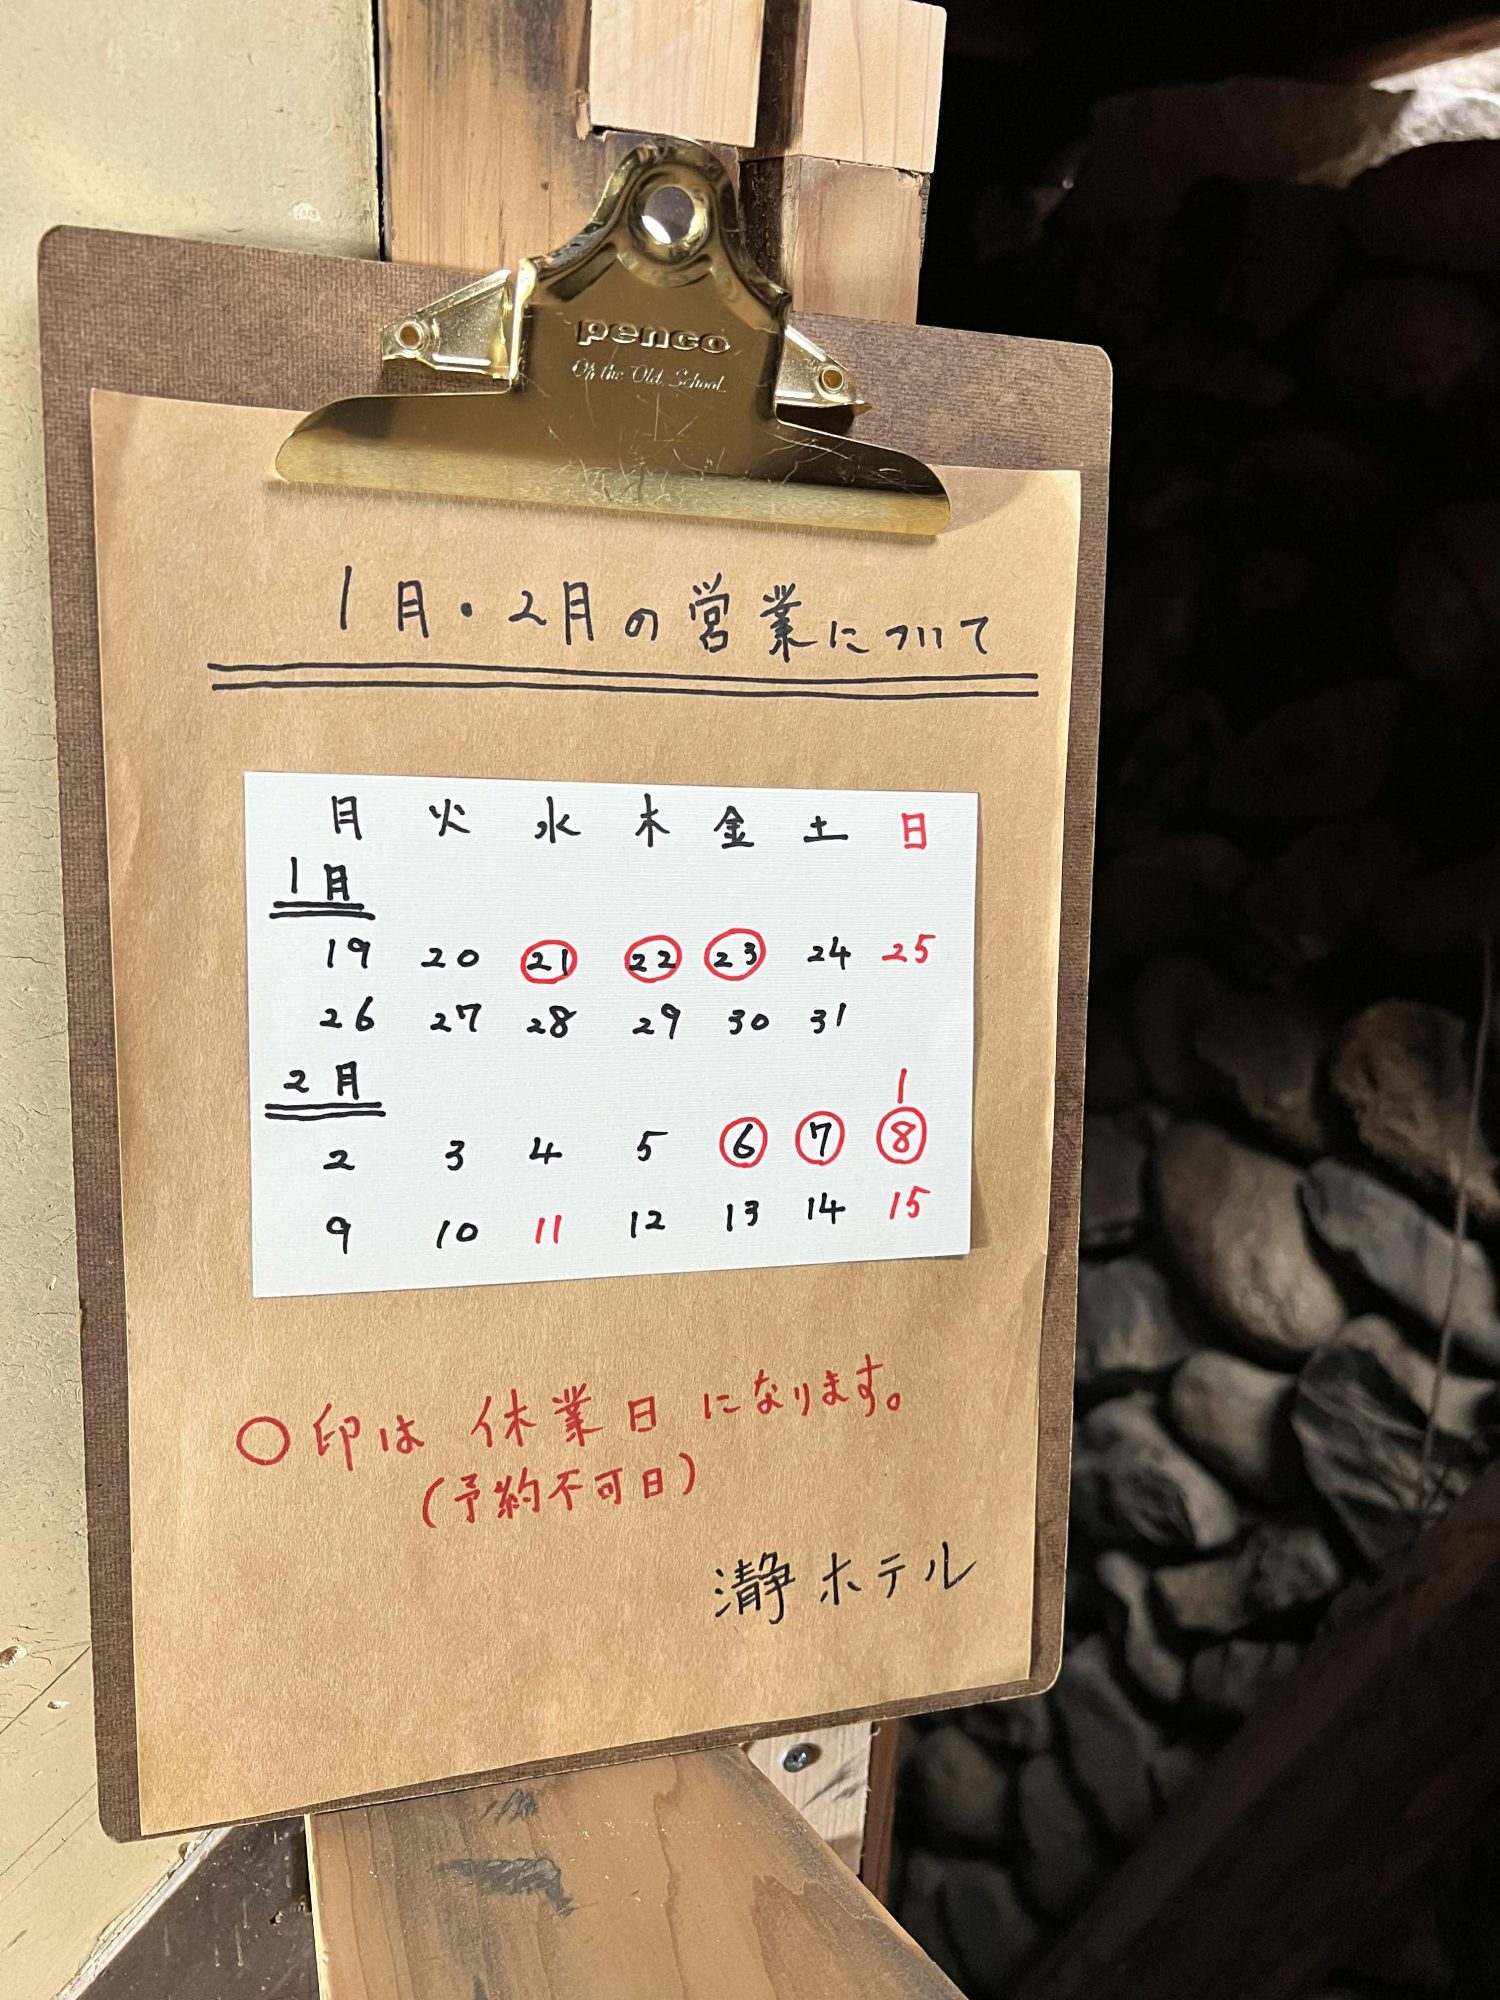 penco
Of the Old School.
1月・2月の営業について
月 火 水 木 金 土 日
1月
19 20 21 22 23 24 25
26 27 28 29 30 31
2月
1
2 3 4 5 6 7 8
9 10 11 12 13 14 15
○印は 休業日 になります。
(予約不可日)
瀞ホテル